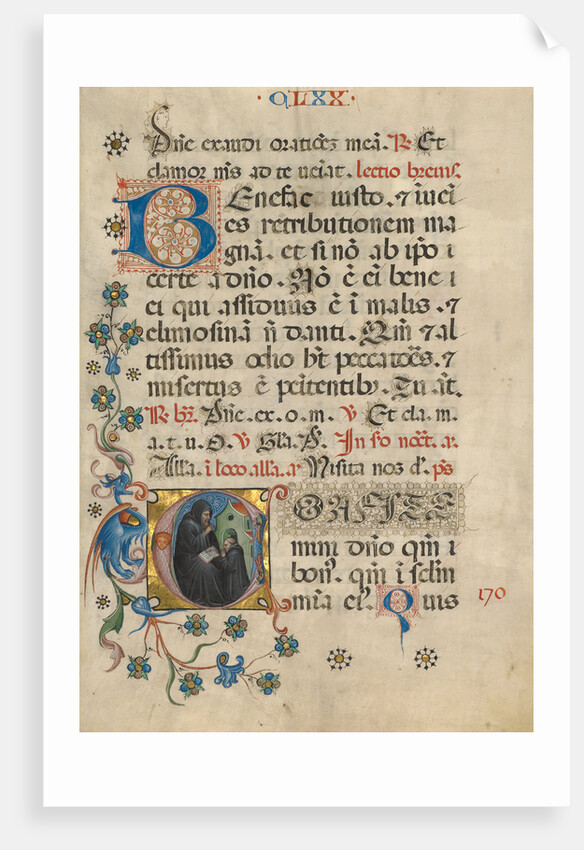 · CLXX ·
Dñe exaudi orationeʒ meã. ℟ Et
clamor mẽs ad te ueĩat. lectio breuis.
Benefac iusto. ⁊ inueĩ
es retributionem ma
gnã. et si nõ ab ipo i
certe a dño. Nõ ẽ ei bene i
ei qui assiduus ẽ ĩ malis. ⁊
elimosinã ñ danti. Qm̃ ⁊ al
tissimus odio ht̃ peccatoẽs. ⁊
misertus ẽ penitentibʒ. Tu at̃.
℟ br̃. Dñe. ex. o. m. ℣ Et cla. m.
a. t. u. O. ℣ Gla. P.
Alla. i loco alla. a Uisita nos
Confite
mini dño qm̃ i
bon. qm̃ i sclm̃
mĩa eĩ. Quis
170